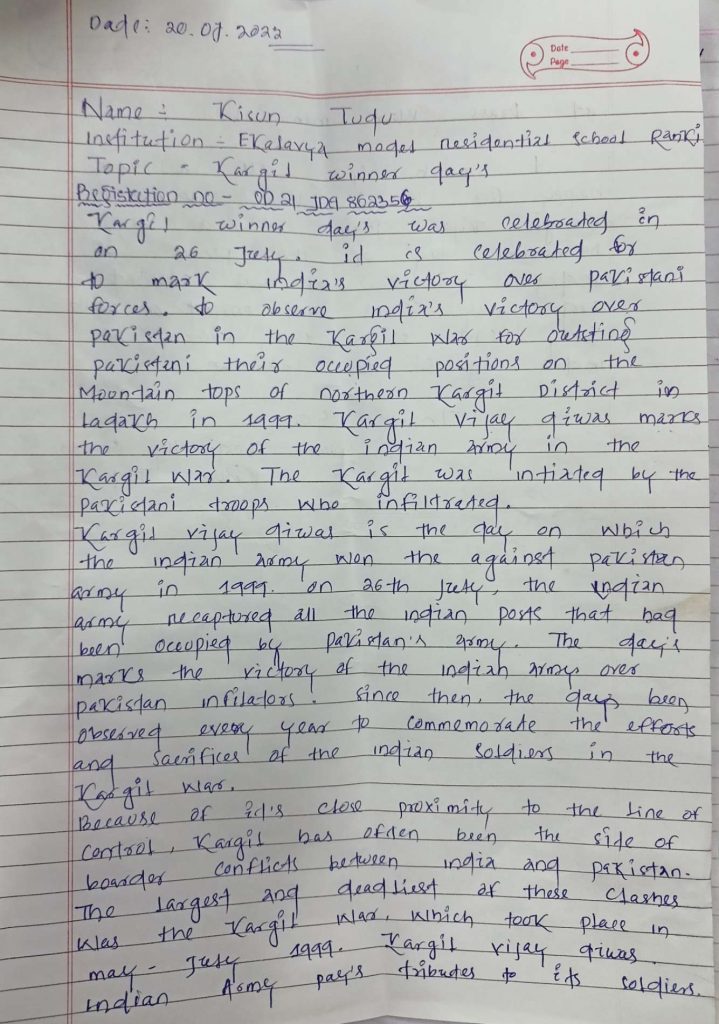 Dade: 20.07.2022
Date
Page
Name :- Kisun Tudu
institution :- EKalavya model residential school Ranki
Topic - Kargil winner day's
Registation no - OD 21 JDA 862356
Kargil winner day's was celebrated in
on 26 July. id is celebrated for
to mark india's victory over pakistani
forces. to observe india's victory over
pakistan in the Kargil War for outsting
pakisteni their occupied positions on the
Mountain tops of northern Kargil District in
Ladakh in 1999. Kargil vijay diwas marks
the victory of the indian army in the
Kargil War. The Kargil was intiated by the
pakistani troops who infiltrated.
Kargil vijay diwas is the day on which
the indian army won the against pakistan
army in 1999. on 26-th July, the indian
army recaptured all the indian posts that had
been occupied by pakistan's army. The day's
marks the victory of the indian army over
pakistan infilators. since then, the days been
observed every year to commemorate the efforts
and sacrifices of the indian soldiers in the
Kargil war.
Because of id's close proximity to the line of
control, Kargil has ofden been the side of
boarder conflicts between india and pakistan.
The largest and deadliest of these clashes
was the Kargil war, which took place in
may - July 1999. Kargil vijay diwas.
indian Army pay's tributes to its soldiers.